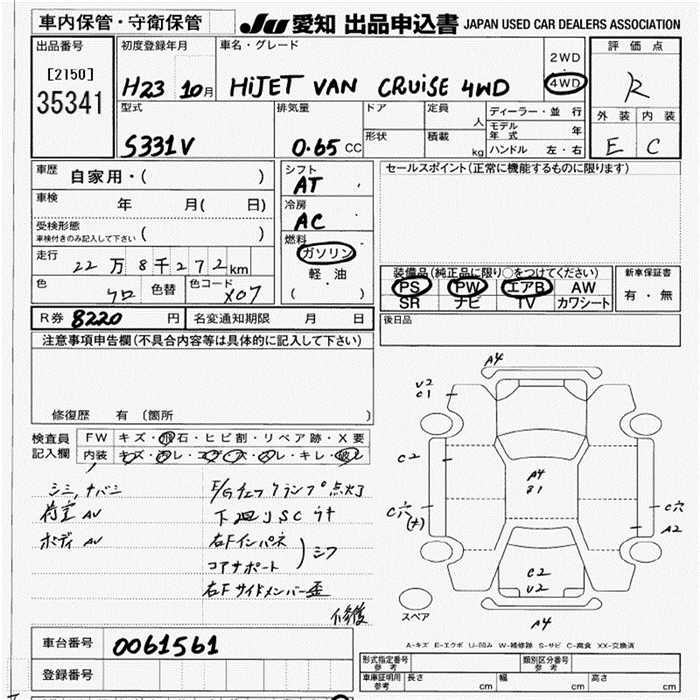 車内保管・守衛保管 JU 愛知 出品申込書 JAPAN USED CAR DEALERS ASSOCIATION
出品番号 初度登録年月 車名・グレード 2WD 評価点
[2150] H23 10月 HiJET VAN CRUiSE 4WD 4WD R
35341
型式 排気量 ドア 定員 人 ディーラー・並行 外装 内装
モデル年式 年
S331V 0.65 CC 形状 積載 kg ハンドル 左・右 E C
車歴 自家用・( ) シフト AT セールスポイント(正常に機能するものに限ります)
車検 年 月( 日) 冷房 AC
受検形態
車検付きのみ記入して下さい ( )
燃料 ガソリン
走行 22万8千272km 軽油
( )
装備品(純正品に限り○をつけてください) 新車保証書
色 クロ 色替 色コード X07
PS PW エアB AW 有・無
SR ナビ TV カワシート
R券 8220 円 名変通知期限 月 日 後日品
注意事項申告欄(不具合内容等は具体的に記入して下さい)
修復歴 有 (箇所 )
検査員 FW キズ・飛石・ヒビ割・リペア跡・X要
記入欄 内装 キズ・汚レ・コゲ・穴・スレ・キレ・破レ
シミ,ナバミ F/Gチェックランプ点灯
荷室AV 下廻りSCサキ
ボディAV 右Fインパネ
コアサポート
右Fサイドメンバー歪
修復
A4
U2
C1
C2
A4
C穴
C穴
A2
C2
U2
A4
スペア
A-キズ E-エクボ U-凹み W-補修跡 S-サビ C-腐食 XX-交換済
車台番号 0061561
登録番号
形式指定番号 参考 類別区分番号 参考
車庫証明用 参考 長さ cm 幅 cm 高さ cm